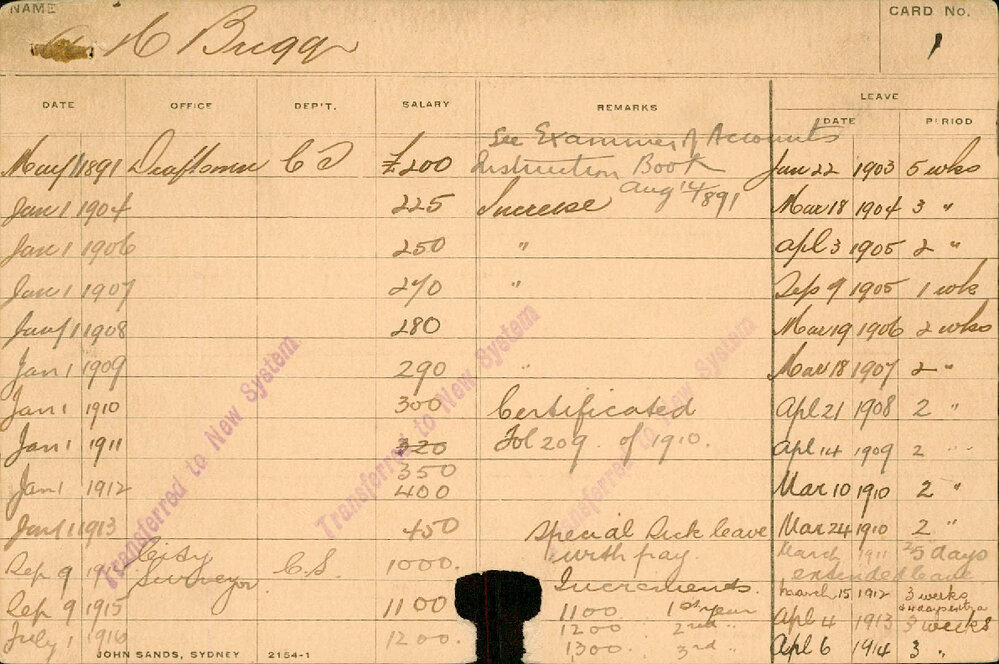 NAME H Bugg
CARD No. 1
DATE OFFICE DEP'T. SALARY REMARKS LEAVE
DATE PERIOD
See Examiner of Accounts
May 1 1891 Draftsman £200 Instruction Book Jan 22 1903 5 wks
Aug 14/1891
Jan 1 1904 225 Increase Mar 18 1904 3 "
Jan 1 1906 250 " Apl 3 1905 2 "
Jan 1 1907 270 " Sep 9 1905 1 wk
Jany 1 1908 280 Mar 19 1906 2 wks
Jan 1 1909 290 " Mar 18 1907 2 "
Jan 1 1910 300 Certificated Apl 21 1908 2 "
Jan 1 1911 320 Fol 209. of 1910. Apl 14 1909 2 "
350
Jan 1 1912 400 Mar 10 1910 2 "
Jany 1 1913 450 Special Sick leave Mar 24 1910 2 "
City with pay. March 1911 25 days
Sep 9 Surveyor C.S. 1000. extended leave
Increments. March 15 1912 3 weeks
Sep 9 1915 1100 1100 1st year
1200 2nd " Apl 4 1913 3 weeks
July 1 1916 1200. 1300. 3rd " Apl 6 1914 3 "
Transferred to New System
Transferred to New System
Transferred to New System
JOHN SANDS, SYDNEY 2154-1